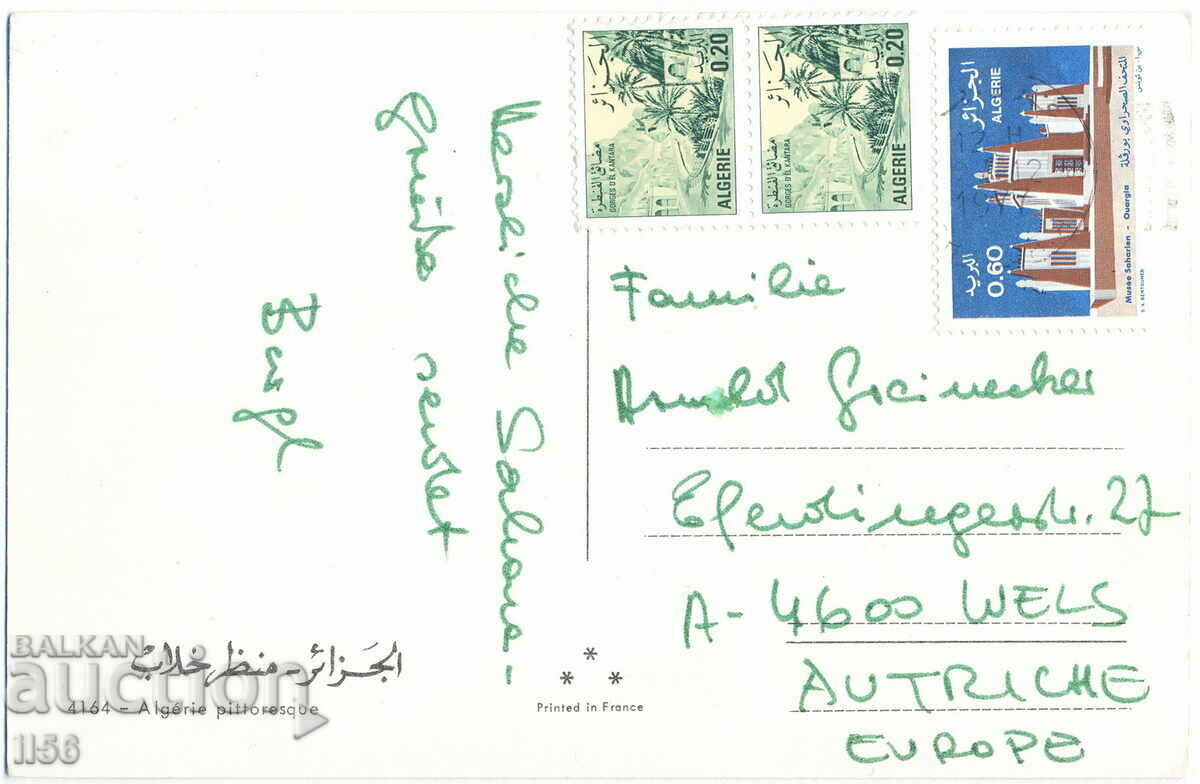 Herzliche Sahara-
Grüße sendet
الجزائر
البريد
0.20
مضائق القنطرة
GORGES D'EL KANTARA
ALGERIE
الجزائر
البريد
0.20
مضائق القنطرة
GORGES D'EL KANTARA
ALGERIE
الجزائر
ALGERIE
البريد
0.60
المتحف الصحراوي بورقلة
Musée Saharien - Ouargla
Familie
Arnold
Eferdingerstr. 27
A-4600 WELS
AUTRICHE
EUROPE
الجزائر - منظر خلاب
4164 - Algérie pittoresque
* * *
Printed in France
BALKAN
auction
1156